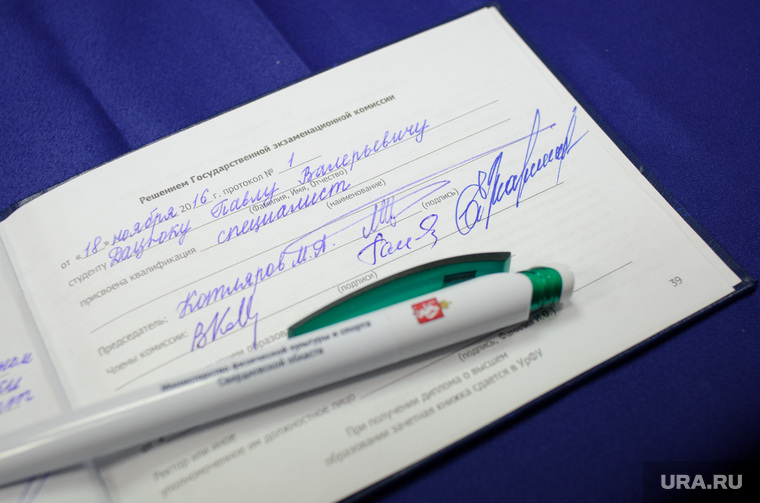 Решением Государственной экзаменационной комиссии
от «18» ноября 2016 г., протокол № 1
студенту Дацюку Павлу Валерьевичу
(Фамилия, Имя, Отчество)
присвоена квалификация специалист
(наименование)
Председатель: Котляров М.А.
(подпись)
Члены комиссии:
(подписи)
39
Министерство физической культуры и спорта
Свердловской области
(подпись, Фамилия И.О.)
Ректор или иное
уполномоченное им должностное лицо
При получении диплома о высшем
образовании зачетная книжка сдается в УрФУ
URA.RU